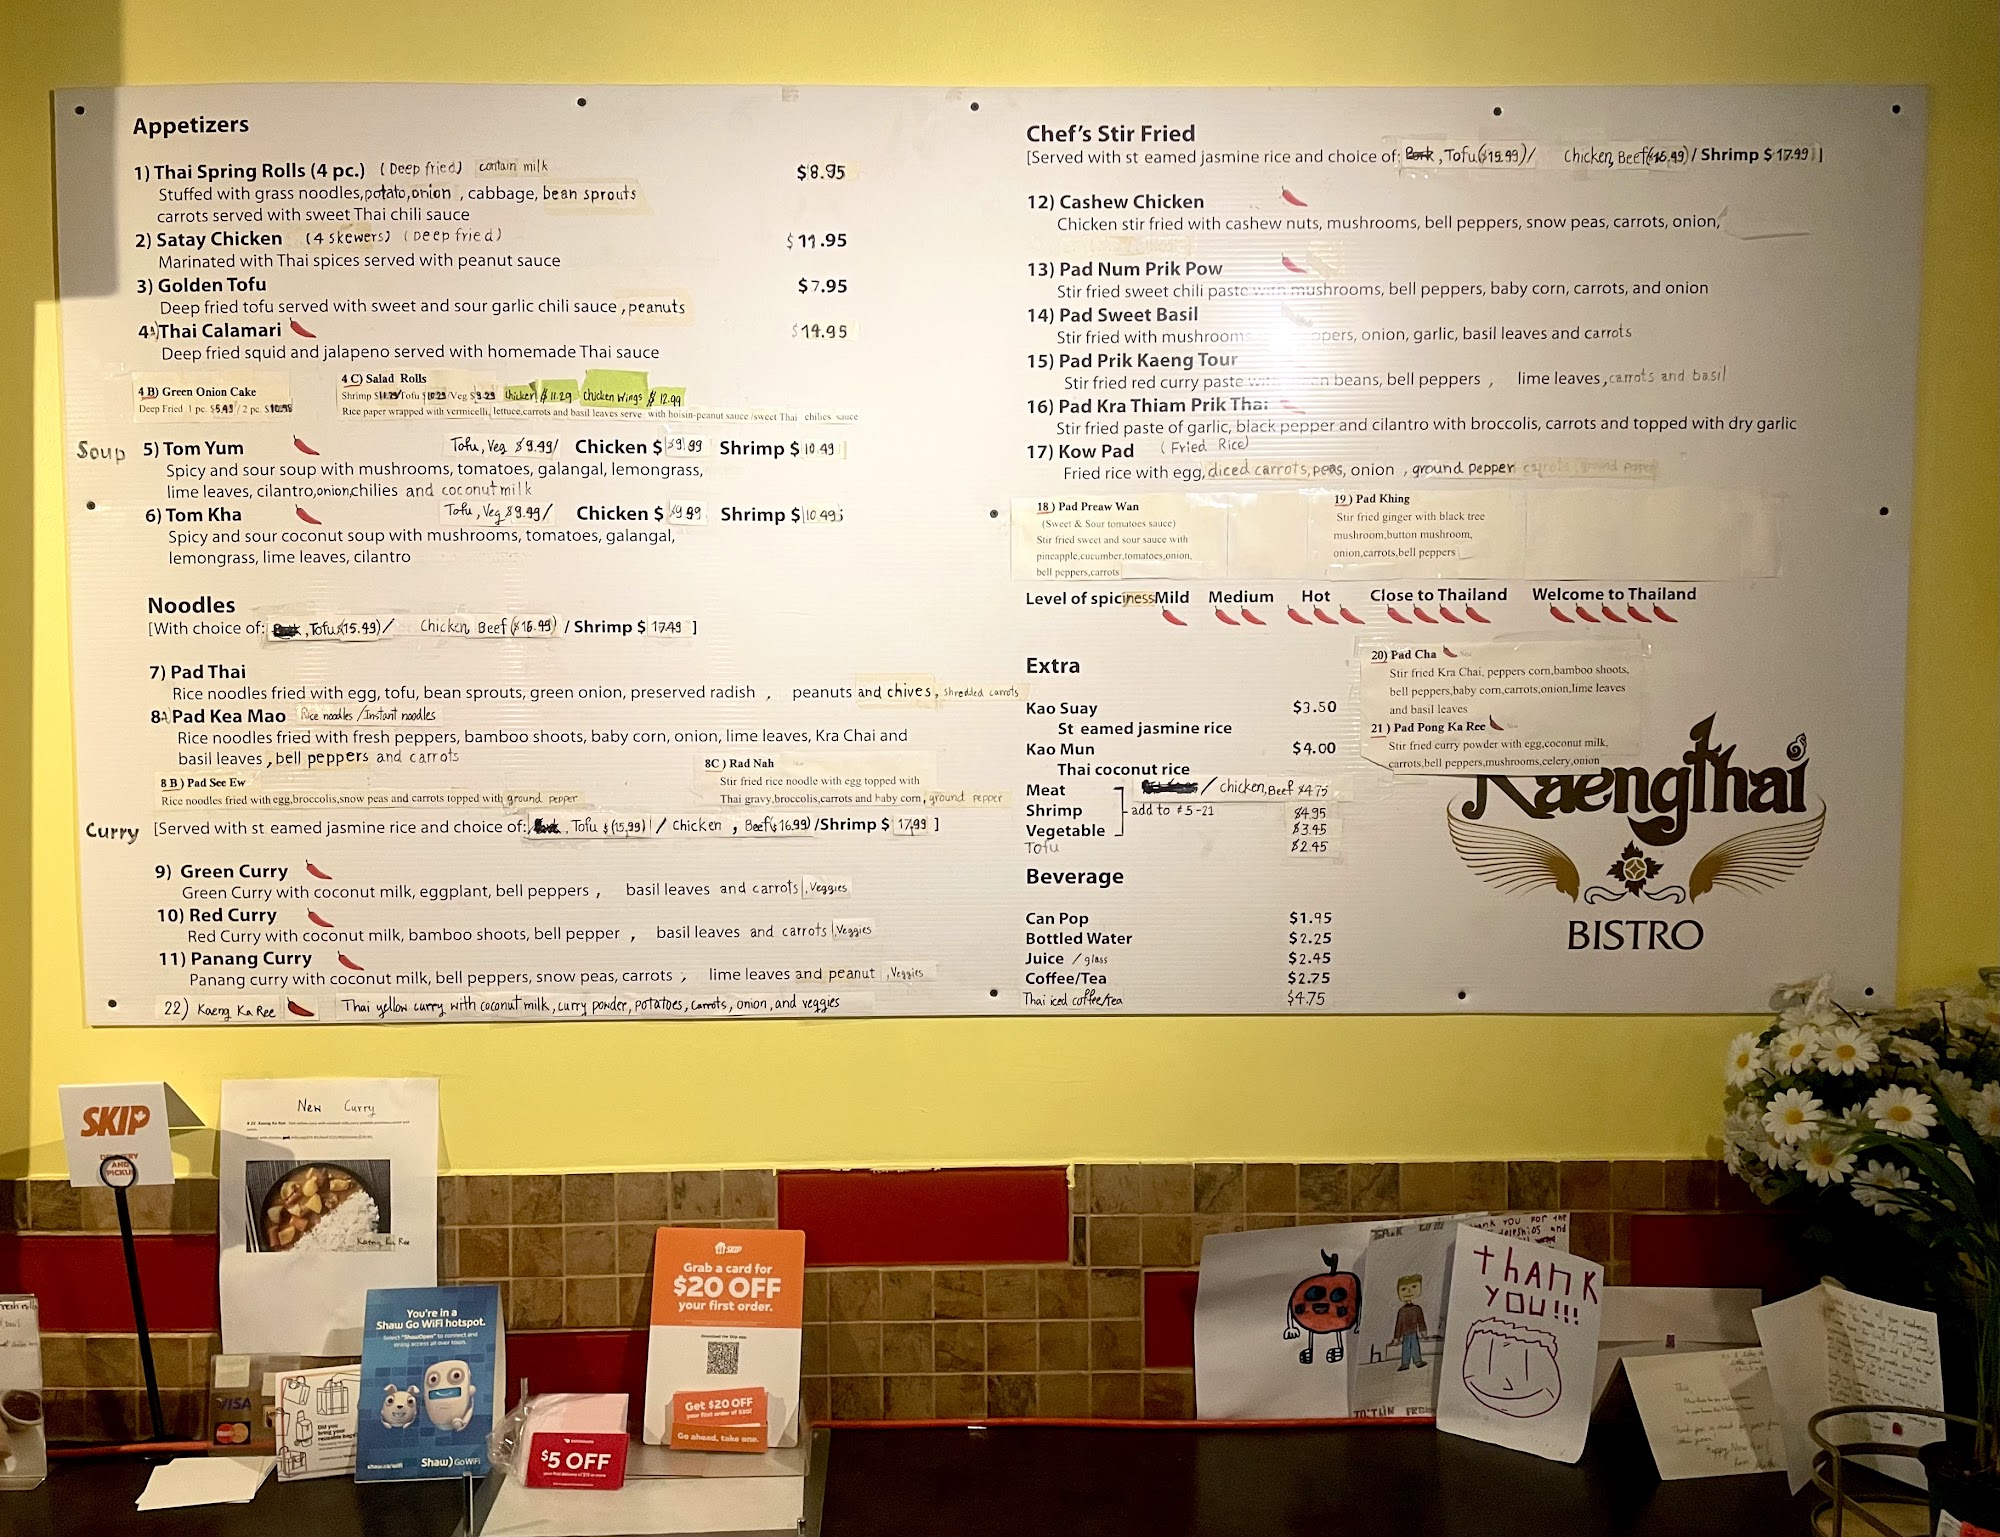 Appetizers
1) Thai Spring Rolls (4 pc.) (Deep fried) contain milk $8.95
Stuffed with grass noodles,potato,onion , cabbage, bean sprouts
carrots served with sweet Thai chili sauce
2) Satay Chicken (4 skewers) (Deep fried) $11.95
Marinated with Thai spices served with peanut sauce
3) Golden Tofu $7.95
Deep fried tofu served with sweet and sour garlic chili sauce , peanuts
4A) Thai Calamari $14.95
Deep fried squid and jalapeno served with homemade Thai sauce
4 B) Green Onion Cake
Deep Fried 1 pc. $5.49 / 2 pc. $10.98
4 C) Salad Rolls
Shrimp $11.29/Tofu $10.29/Veg $9.29 Chicken $11.29 Chicken Wings $12.99
Rice paper wrapped with vermicelli, lettuce,carrots and basil leaves serve with hoisin-peanut sauce /sweet Thai chilies sauce
Soup
5) Tom Yum Tofu, Veg $9.49/ Chicken $9.99 Shrimp $10.49
Spicy and sour soup with mushrooms, tomatoes, galangal, lemongrass,
lime leaves, cilantro,onion,chilies and coconut milk
6) Tom Kha Tofu, Veg $9.49/ Chicken $9.99 Shrimp $10.49
Spicy and sour coconut soup with mushrooms, tomatoes, galangal,
lemongrass, lime leaves, cilantro
Noodles
[With choice of: , Tofu($15.49)/ Chicken, Beef ($16.49) / Shrimp $17.49 ]
7) Pad Thai
Rice noodles fried with egg, tofu, bean sprouts, green onion, preserved radish , peanuts and chives, shredded carrots
8A) Pad Kea Mao Rice noodles/Instant noodles
Rice noodles fried with fresh peppers, bamboo shoots, baby corn, onion, lime leaves, Kra Chai and
basil leaves , bell peppers and carrots
8 B ) Pad See Ew
Rice noodles fried with egg,broccolis,snow peas and carrots topped with ground pepper
8C ) Rad Nah
Stir fried rice noodle with egg topped with
Thai gravy,broccolis,carrots and baby corn, ground pepper
Curry [Served with st eamed jasmine rice and choice of: , Tofu $(15.99) / Chicken , Beef($16.99) /Shrimp $17.99 ]
9) Green Curry
Green Curry with coconut milk, eggplant, bell peppers , basil leaves and carrots , Veggies
10) Red Curry
Red Curry with coconut milk, bamboo shoots, bell pepper , basil leaves and carrots , Veggies
11) Panang Curry
Panang curry with coconut milk, bell peppers, snow peas, carrots , lime leaves and peanut , Veggies
22) Kaeng Ka Ree Thai yellow curry with coconut milk, curry powder, potatoes, carrots, onion, and veggies
Chef's Stir Fried
[Served with st eamed jasmine rice and choice of: Pork, Tofu($15.99)/ Chicken, Beef($16.49)/ Shrimp $17.99 ]
12) Cashew Chicken
Chicken stir fried with cashew nuts, mushrooms, bell peppers, snow peas, carrots, onion,
13) Pad Num Prik Pow
Stir fried sweet chili paste with mushrooms, bell peppers, baby corn, carrots, and onion
14) Pad Sweet Basil
Stir fried with mushrooms onion, garlic, basil leaves and carrots
15) Pad Prik Kaeng Tour
Stir fried red curry paste with beans, bell peppers , lime leaves,carrots and basil
16) Pad Kra Thiam Prik Thai
Stir fried paste of garlic, black pepper and cilantro with broccolis, carrots and topped with dry garlic
17) Kow Pad (Fried Rice)
Fried rice with egg, diced carrots,peas, onion , ground pepper
18 ) Pad Preaw Wan
(Sweet & Sour tomatoes sauce)
Stir fried sweet and sour sauce with
pineapple,cucumber,tomatoes,onion,
bell peppers,carrots
19 ) Pad Khing
Stir fried ginger with black tree
mushroom,button mushroom,
onion,carrots,bell peppers
Level of spiciness Mild Medium Hot Close to Thailand Welcome to Thailand
Extra
Kao Suay $3.50
St eamed jasmine rice
Kao Mun $4.00
Thai coconut rice
Meat / chicken, Beef $4.75
Shrimp add to #5-21 $4.95
Vegetable $3.45
Tofu $2.45
20) Pad Cha New
Stir fried Kra Chai, peppers corn,bamboo shoots,
bell peppers,baby corn,carrots,onion,lime leaves
and basil leaves
21 ) Pad Pong Ka Ree New
Stir fried curry powder with egg,coconut milk,
carrots,bell peppers,mushrooms,celery,onion
KaengThai
BISTRO
Beverage
Can Pop $1.95
Bottled Water $2.25
Juice / glass $2.45
Coffee/Tea $2.75
Thai iced coffee/tea $4.75
SKIP
DELIVERY
AND
PICKUP
New Curry
Kaeng Ka Ree
You're in a
Shaw Go WiFi hotspot.
Select "ShawOpen" to connect and
enjoy access all over town.
shaw.ca/wifi Shaw) GoWiFi
VISA
MasterCard
Did you
bring your
reusable bags?
SKIP
Grab a card for
$20 OFF
your first order.
Download the Skip app
Get $20 OFF
your first order of $30!
Go ahead, take one.
$5 OFF
THANK
YOU!!!